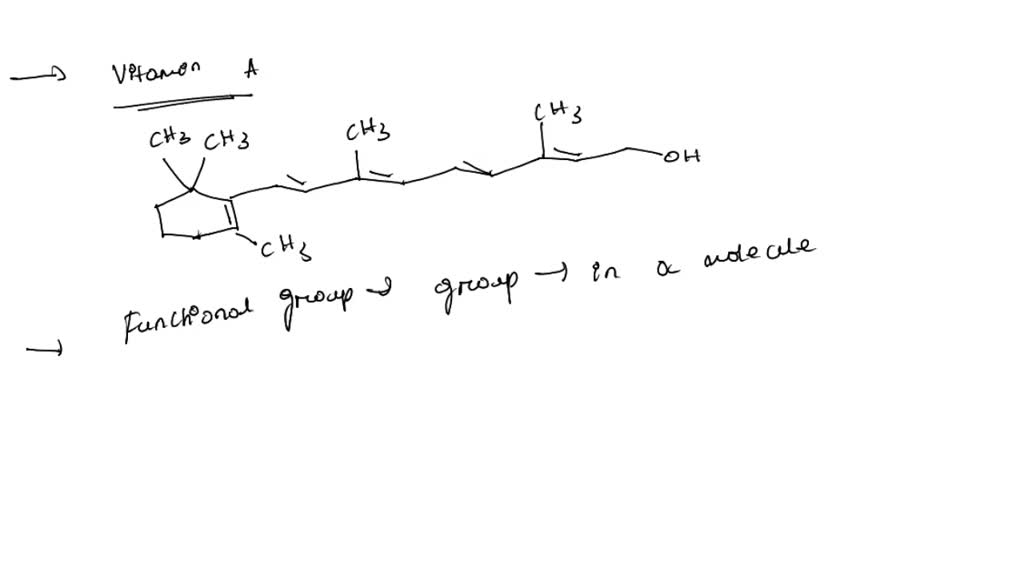 → Vitamin A
CH3 CH3 CH3 CH3
OH
CH3
→ Functional group → group → in a molecule